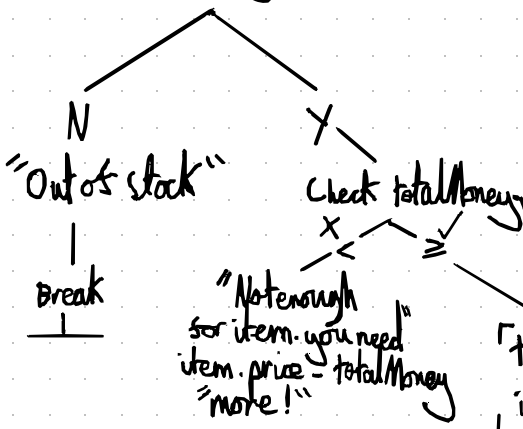 N
Y
"Out of stock"
Check totalMoney
X < ≥ ✓
Break
"Not enough
for item. you need"
item.price - totalMoney
"more!"